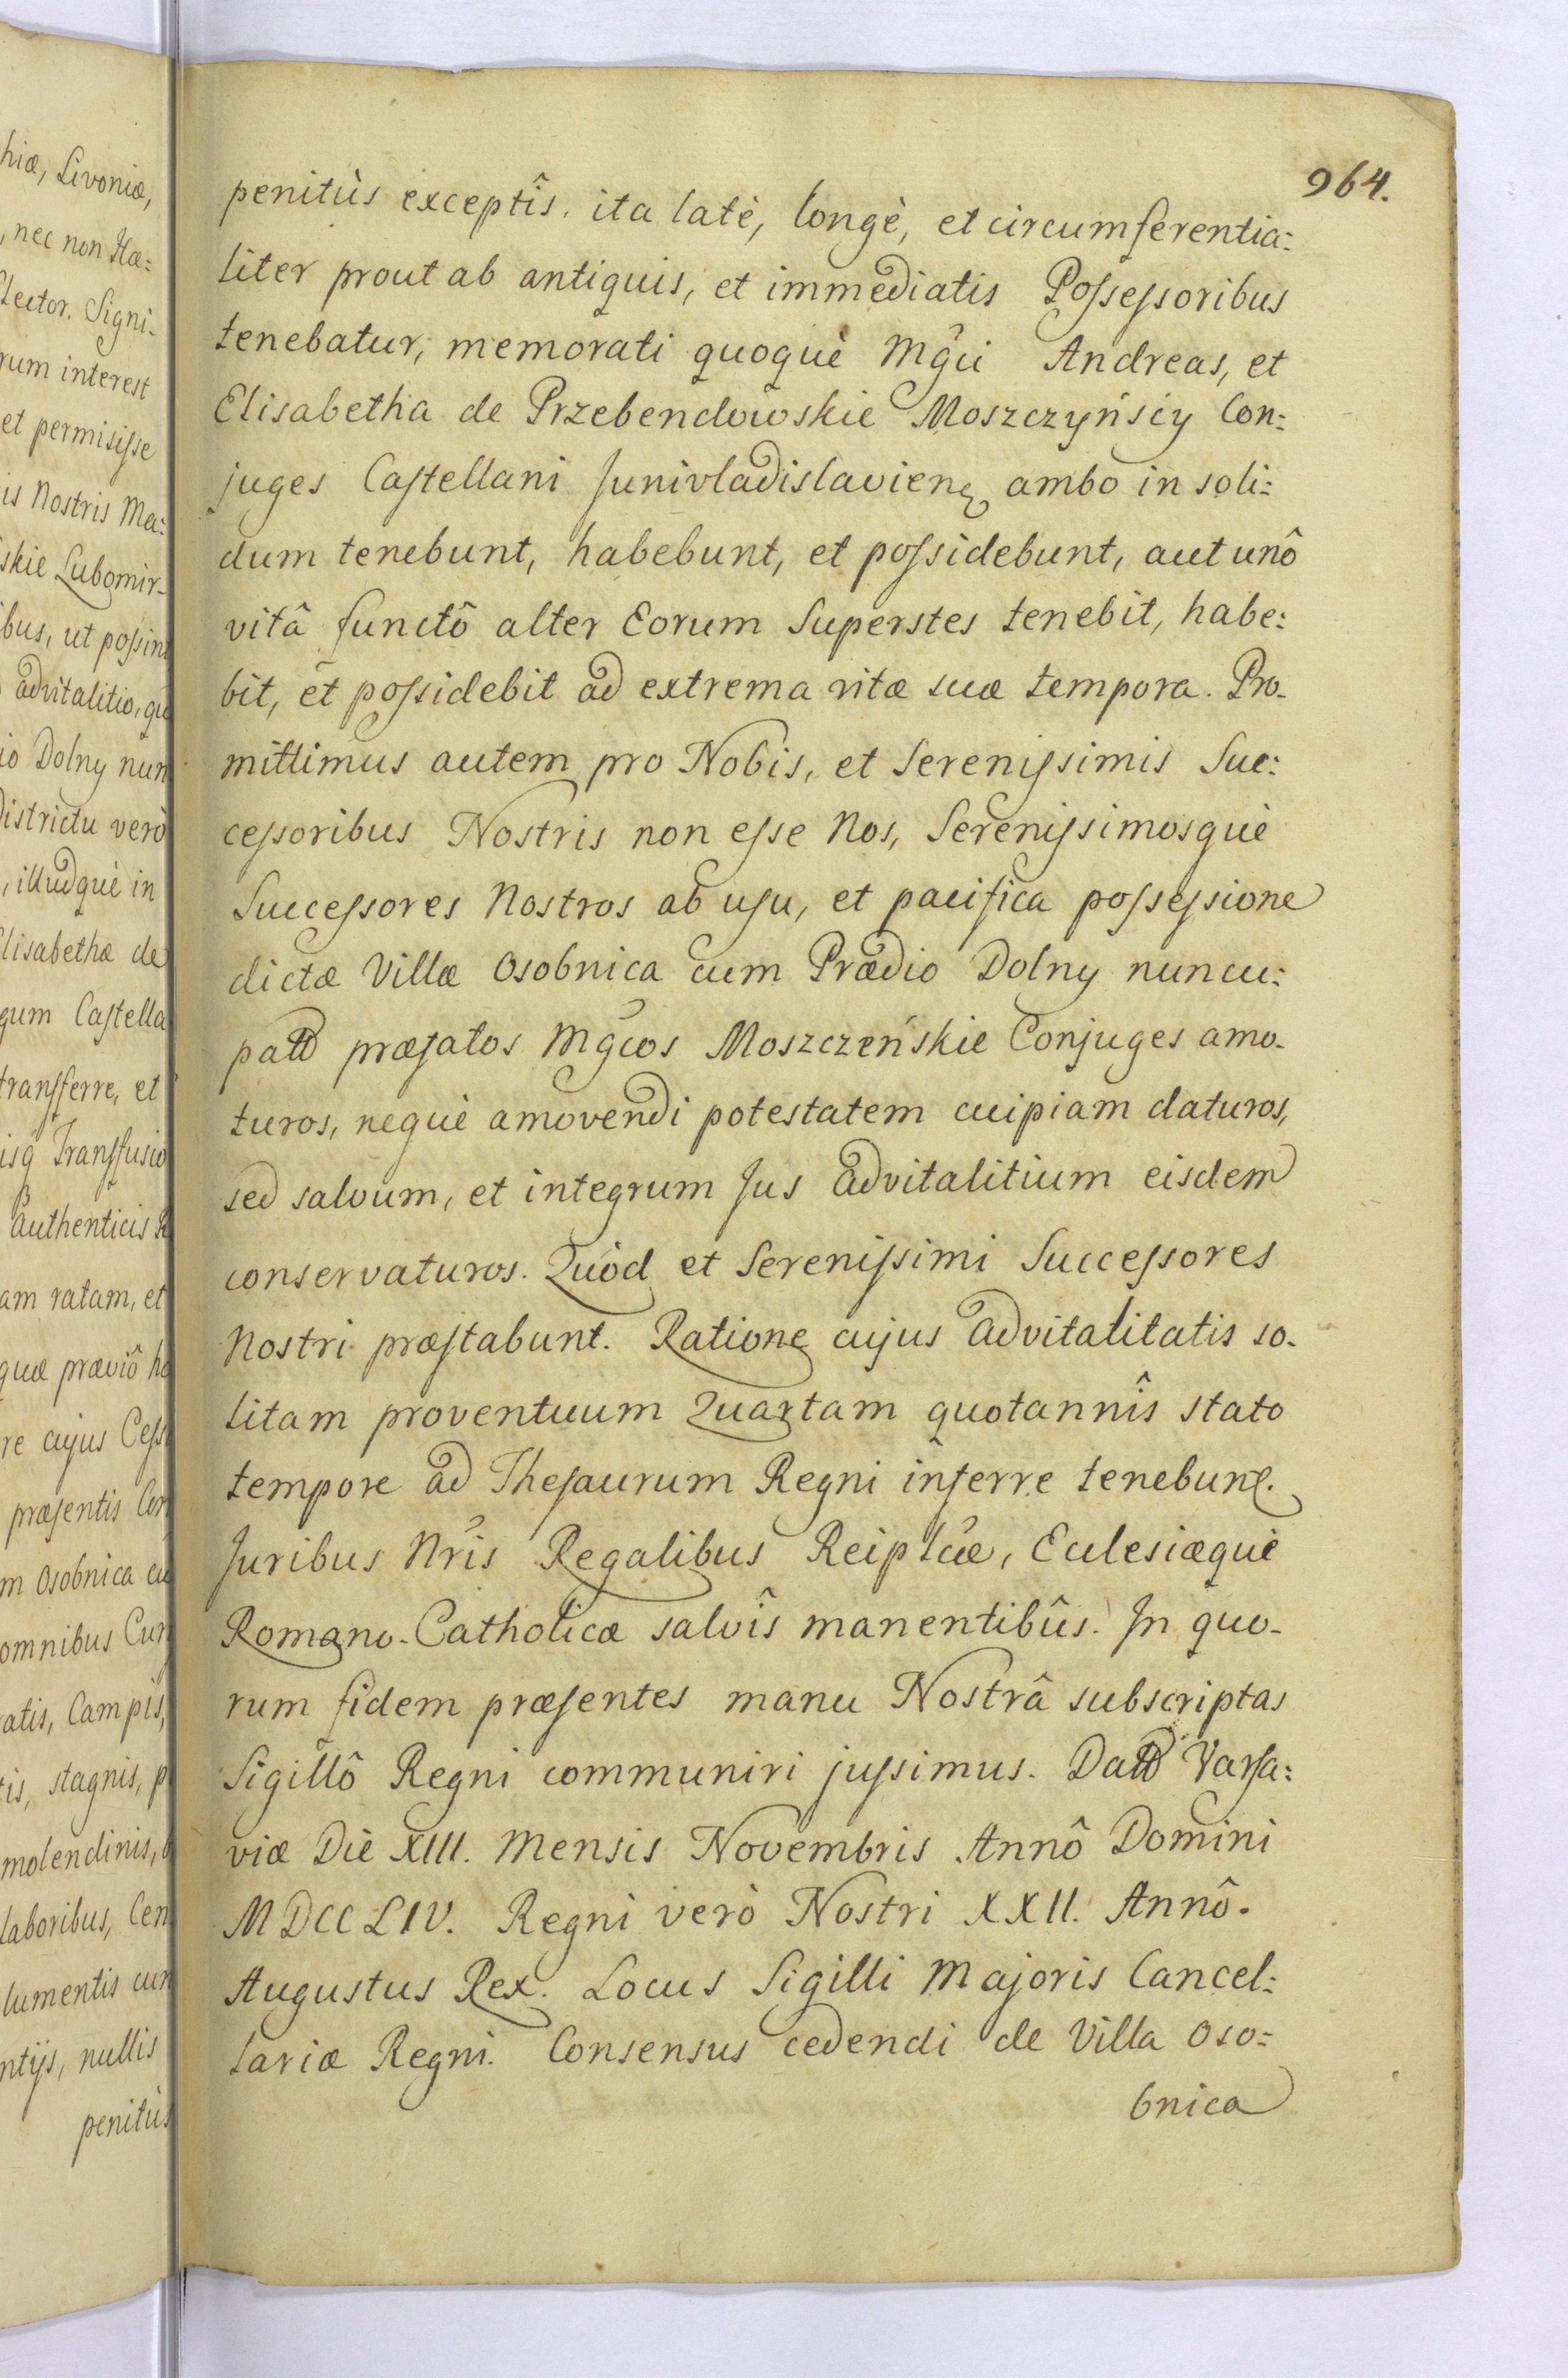 964.
penitùs exceptîs. ita latè, longè, et circumferentia:
liter prout ab antiquis, et immediatis Possessoribus
tenebatur, memorati quoquè Mgci Andreas, et
Elisabetha de Przebendowskie Moszczyńscy Con:
juges Castellani Junivladislavien ambo in soli:
dum tenebunt, habebunt, et possidebunt, aut unô
vitâ functô alter Eorum Superstes tenebit, habe:
bit, et possidebit ad extrema vitæ suæ tempora. Pro-
mittimus autem pro Nobis, et Serenissimis Suc:
cessoribus Nostris non esse Nos, Serenissimosquè
Successores Nostros ab usu, et pacifica possessione
dictæ Villæ Osobnica cum Prædio Dolny nuncu:
patô præfatos Mgcos Moszczeńskie Conjuges amo-
turos, nequè amovendi potestatem cuipiam daturos,
sed salvum, et integrum Jus advitalitium eisdem
conservaturos. Quòd et Serenissimi Successores
Nostri præstabunt. Ratione cujus advitalitatis so-
litam proventuum Quartam quotannîs stato
tempore ad Thesaurum Regni inferre tenebunt.
Juribus Nris Regalibus Reiplcæ, Eclesiæquè
Romano-Catholicæ salvîs manentibûs. In quo-
rum fidem præsentes manu Nostrâ subscriptas
Sigillô Regni communiri jussimus. Datt Varsa:
viæ Die XIII. Mensis Novembris Annô Domini
MDCCLIV. Regni verò Nostri XXII. Annô.
Augustus Rex. Locus Sigilli Majoris Cancel:
lariæ Regni. Consensus cedendi de Villa Oso:
bnica
hiæ, Livoniæ,
, nec non Hæ:
lector. Signi-
rum interest
et permisisse
is Nostris Ma:
skie Lubomir-
bus, ut possin
advitalitio, qu
io Dolny nun
districtu verò
, illudquè in
lisabethæ de
gum Castella
transferre, et
isq Transfusio
authenticis R
am ratam, et
quæ præviô ha
re cujus Cess
præsentis Con
m Osobnica cu
omnibus Cur
atis, Campis,
is, stagnis, p
molendinis, b
laboribus, Cen
lumentis cun
ntijs, nullis
penitùs